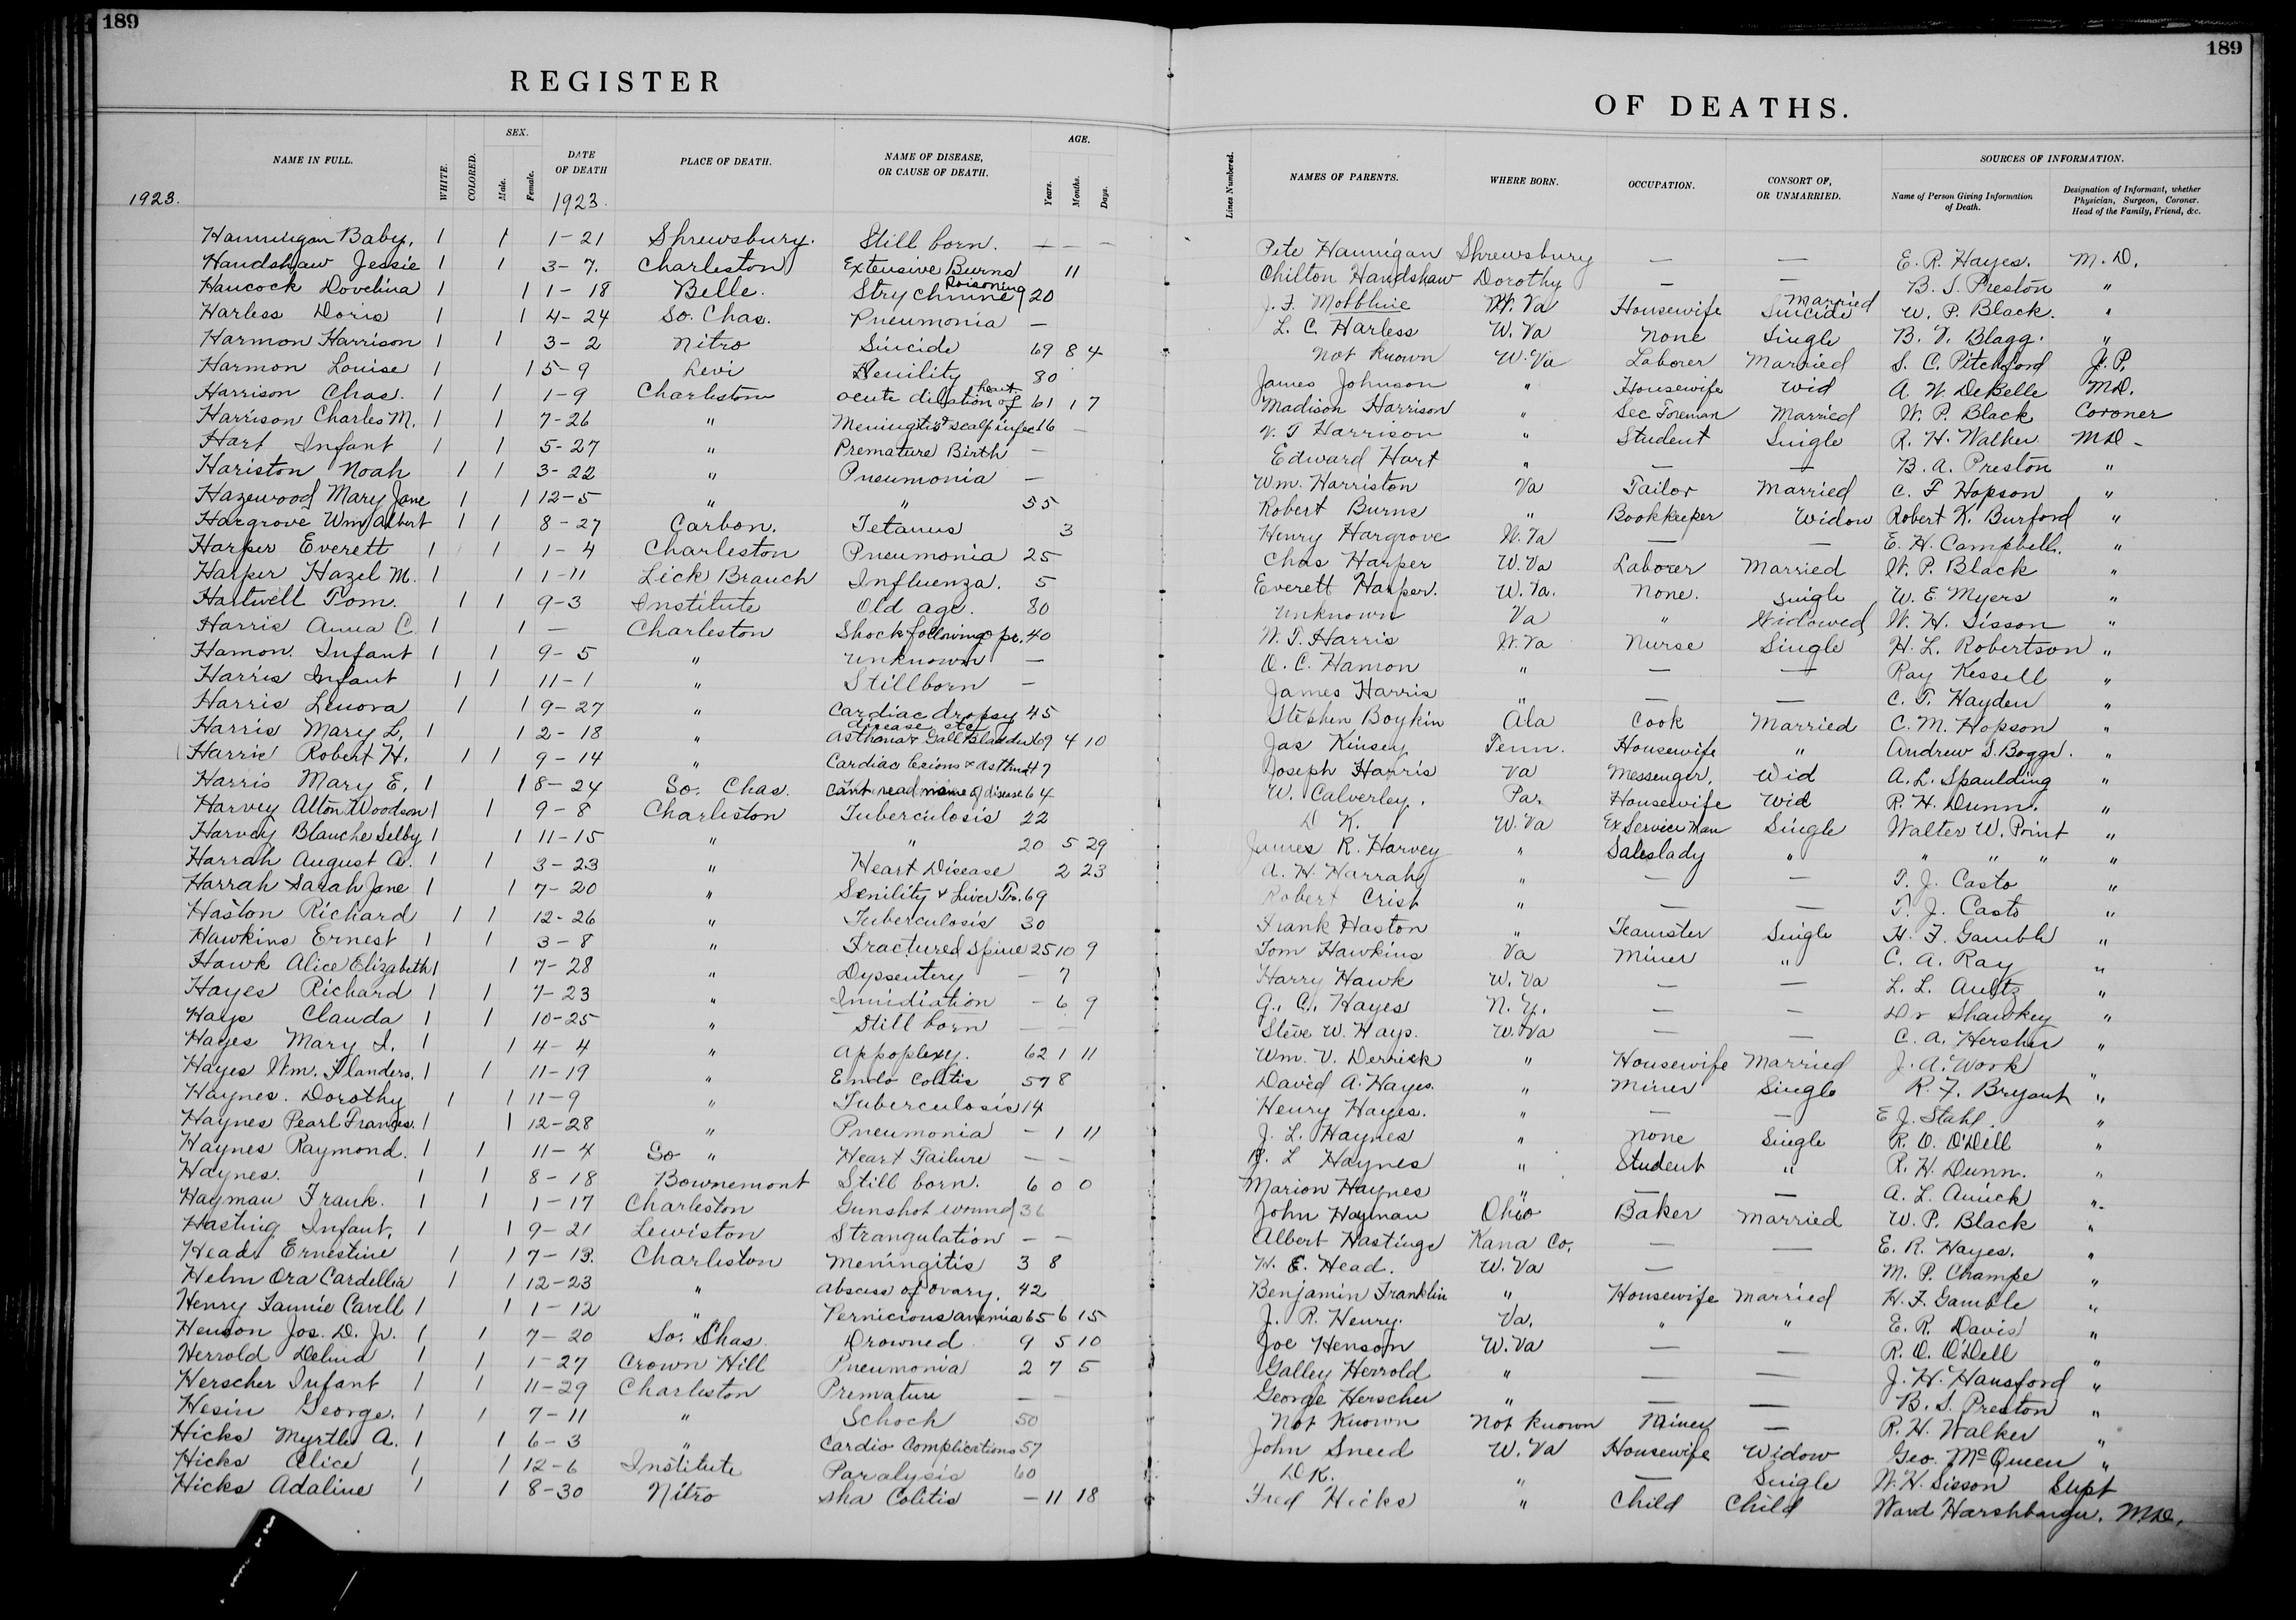 189
189
REGISTER
OF DEATHS.
NAME IN FULL. WHITE. COLORED. SEX. Male. Female. DATE OF DEATH PLACE OF DEATH. NAME OF DISEASE, OR CAUSE OF DEATH. AGE. Years. Months. Days. Lines Numbered. NAMES OF PARENTS. WHERE BORN. OCCUPATION. CONSORT OF, OR UNMARRIED. SOURCES OF INFORMATION. Name of Person Giving Information of Death. Designation of Informant, whether Physician, Surgeon, Coroner. Head of the Family, Friend, &c.
1923. 1923.
Hannigan Baby. 1 1 1-21 Shrewsbury. Still born. — — — Pete Hannigan Shrewsbury — — E. R. Hayes. M. D.
Handshaw Jessie 1 1 3-7. Charleston Extensive Burns 11 Chilton Handshaw Dorothy — — B. S. Preston "
Hancock Dovelina 1 1 1-18 Belle. Strychnine Poisoning 20 J. F. W. Va Housewife Suicide Married W. P. Black. "
Harless Doris 1 1 4-24 So. Chas. Pneumonia — L. C. Harless W. Va None Single B. V. Blagg. "
Harmon Harrison 1 1 3-2 Nitro Suicide 69 8 4 Not Known W. Va Laborer Married S. C. Pitchford J. P.
Harmon Louise 1 1 5-9 Levi Senility 80 James Johnson " Housewife Wid A. W. DeBelle M.D.
Harrison Chas. 1 1 1-9 Charleston acute dilation of heart 61 1 7 Madison Harrison " Sec Foreman Married W. P. Black Coroner
Harrison Charles M. 1 1 7-26 " Meningitis + scalp infec 16 — V. T Harrison " Student Single R. H. Walker M D -
Hart Infant 1 1 5-27 " Premature Birth — Edward Hart " — — B. A. Preston "
Hariston Noah 1 1 3-22 " Pneumonia — Wm. Harriston Va Tailor Married C. F Hopson "
Hazewood Mary Jane 1 1 12-5 " " 55 Robert Burns " Bookkeeper Widow Robert K. Burford "
Hargrove Wm Albert 1 1 8-27 Carbon. Tetanus 3 Henry Hargrove W. Va — — E. H. Campbell. "
Harper Everett 1 1 1-4 Charleston Pneumonia 25 Chas Harper W. Va Laborer Married W. P. Black "
Harper Hazel M. 1 1 1-11 Lick Branch Influenza. 5 Everett Harper. W. Va. None. Single W. E. Myers "
Hartwell Tom. 1 1 9-3 Institute Old age. 80 Unknown Va " Widowed W. H. Sisson "
Harris Anna C 1 1 — Charleston Shock following op. 40 W. T. Harris W. Va Nurse Single H. L. Robertson "
Hamon. Infant 1 1 9-5 " Unknown — O. C. Hamon " — — Ray Kessell "
Harris Infant 1 1 11-1 " Stillborn — James Harris " — — C. T. Hayden "
Harris Lenora 1 1 9-27 " Cardiac dropsy 45 Stephen Boykin Ala Cook Married C. M. Hopson "
Harris Mary L. 1 1 2-18 " Asthma + Gall Bladder disease etc 69 4 10 Jas Kinsey Tenn. Housewife " Andrew S. Boggs. "
Harris Robert H. 1 1 9-14 " Cardiac lesions + asthma 47 Joseph Harris Va Messenger. Wid A. L. Spaulding "
Harris Mary E. 1 1 8-24 So. Chas. Cant read name of disease 64 W. Calverley. Pa. Housewife Wid R. H. Dunn. "
Harvey Alton Woodson 1 1 9-8 Charleston Tuberculosis 22 D K. W. Va Ex Service Man Single Walter W. Point "
Harvey Blanche Selby 1 1 11-15 " " 20 5 29 James R. Harvey " Saleslady " " " " "
Harrah August A. 1 1 3-23 " Heart Disease 2 23 A. H. Harrah " — — T. J. Casto "
Harrah Sarah Jane 1 1 7-20 " Senility + Liver Tr. 69 Robert Crist " — — T. J. Casto "
Haston Richard 1 1 12-26 " Tuberculosis 30 Frank Haston " Teamster Single H. F. Gamble "
Hawkins Ernest 1 1 3-8 " Fractured Spine 25 10 9 Tom Hawkins Va Miner " C. A. Ray "
Hawk Alice Elizabeth 1 1 7-28 " Dyssentery — 7 Harry Hawk W. Va — — L. L. Aultz "
Hayes Richard 1 1 7-23 " — 6 9 G. C. Hayes N. Y. — — Dr Shawkey "
Hays Clauda 1 1 10-25 " Still born — — Steve W. Hays. W. Va — — C. A. Hersher "
Hayes Mary I. 1 1 4-4 " Appoplexy. 62 1 11 Wm. V. Derrick " Housewife Married J. A. Work "
Hayes Wm. Flanders. 1 1 11-19 " Endo Colitis 57 8 David A. Hayes. " Miner Single R. F. Bryant "
Haynes. Dorothy 1 1 11-9 " Tuberculosis 14 Henry Hayes. " — — E J. Stahl. "
Haynes Pearl Frances. 1 1 12-28 " Pneumonia — 1 11 J. L. Haynes " None Single R. O. O'Dell "
Haynes Raymond. 1 1 11-4 So " Heart Failure — — L Haynes " Student " R. H. Dunn. "
Haynes. 1 1 8-18 Bownemont Still born. 6 0 0 Marion Haynes " — — A. L. Amick "
Hayman Frank. 1 1 1-17 Charleston Gunshot wound 36 John Hayman Ohio Baker Married W. P. Black "
Hasting Infant. 1 1 9-21 Lewiston Strangulation — — Albert Hastings Kana Co. — — E. R. Hayes. "
Head Ernestine 1 1 7-13. Charleston Meningitis 3 8 H. E. Head. W. Va — — M. P. Champe "
Helm Ora Cardellia 1 1 12-23 " Abscess of Ovary. 42 Benjamin Franklin " Housewife Married H. F. Gamble "
Henry Fannie Cavell 1 1 1-12 " Pernicious anemia 65 6 15 J. R. Henry. Va. " " E. R. Davis "
Henson Jos. D. Jr. 1 1 7-20 So. Chas. Drowned 9 5 10 Joe Henson W. Va — — R. O. O'Dell "
Herrold Delma 1 1 1-27 Crown Hill Pneumonia 2 7 5 Galley Herrold " — — J. H. Hansford "
Herscher Infant 1 1 11-29 Charleston Premature — — George Herscher " — — B. S. Preston "
Hesin George. 1 1 7-11 " Schock 50 Not Known Not Known Miner — R. H. Walker "
Hicks Myrtle A. 1 1 6-3 " Cardio Complications 57 John Sneed W. Va Housewife Widow Geo. McQueen "
Hicks Alice 1 1 12-6 Institute Paralysis 60 D K. " — Single W. H. Sisson Supt
Hicks Adaline 1 1 8-30 Nitro Colitis — 11 18 Fred Hicks " Child Child Ward Harshbarger. M.D.